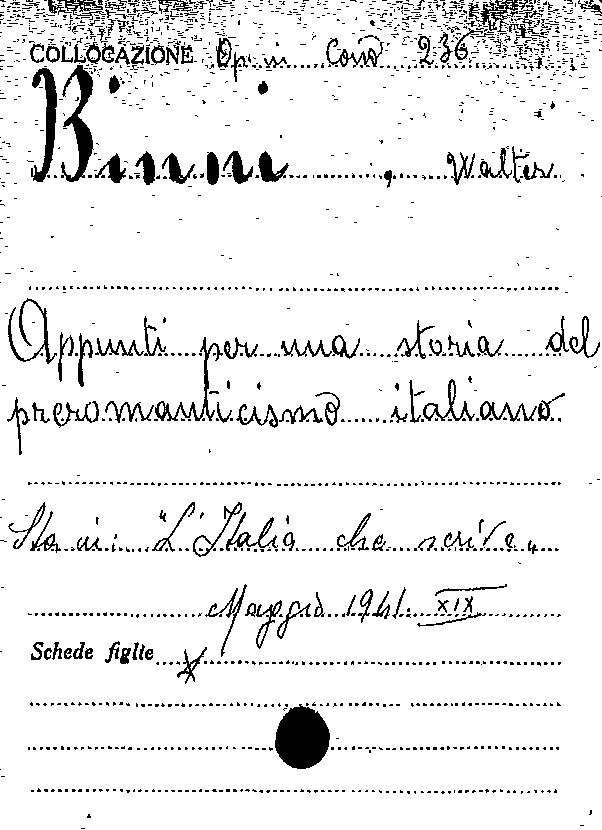 COLLOCAZIONE Op. in Cons 236
Binni, Walter
Appunti per una storia del
preromanticismo italiano
Sta in: "L'Italia che scrive„
Maggio 1941. XIX
Schede figlie